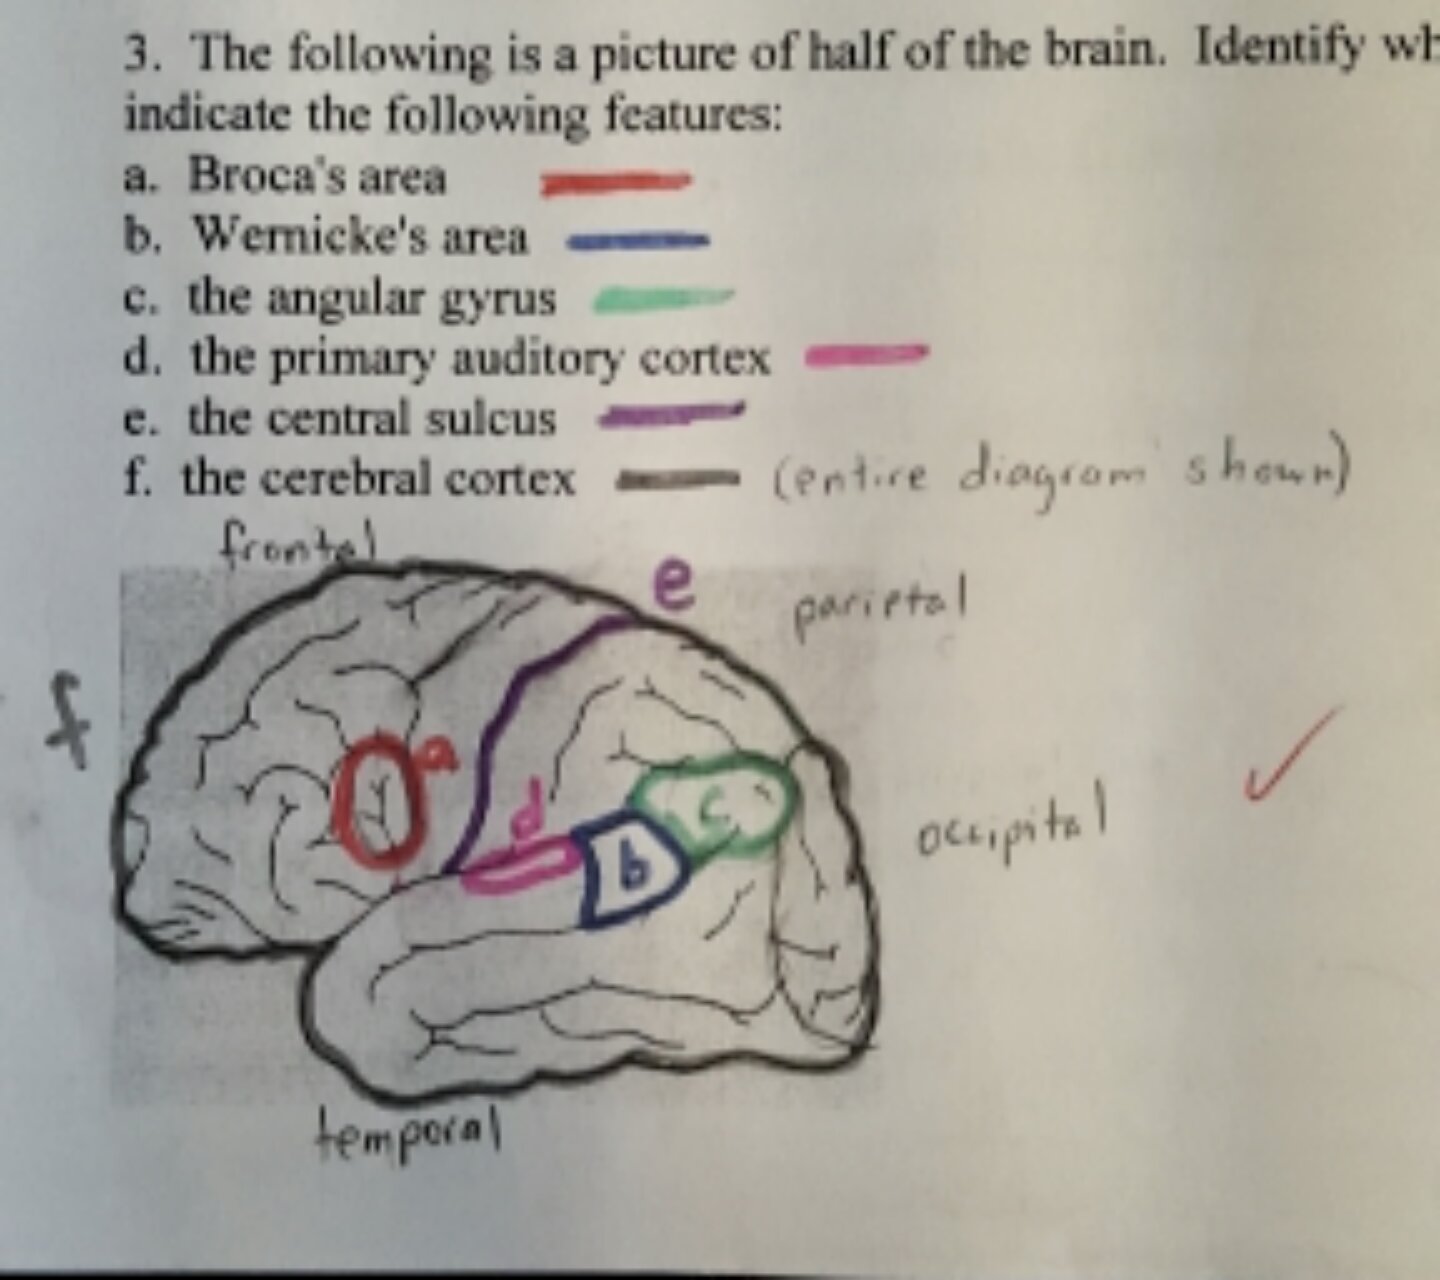 3. The following is a picture of half of the brain. Identify
indicate the following features:
a. Broca's area
b. Wernicke's area
c. the angular gyrus
d. the primary auditory cortex
e. the central sulcus
f. the cerebral cortex (entire diagram shown)
frontal
e
parietal
f
a
d
c
occipital
b
temporal